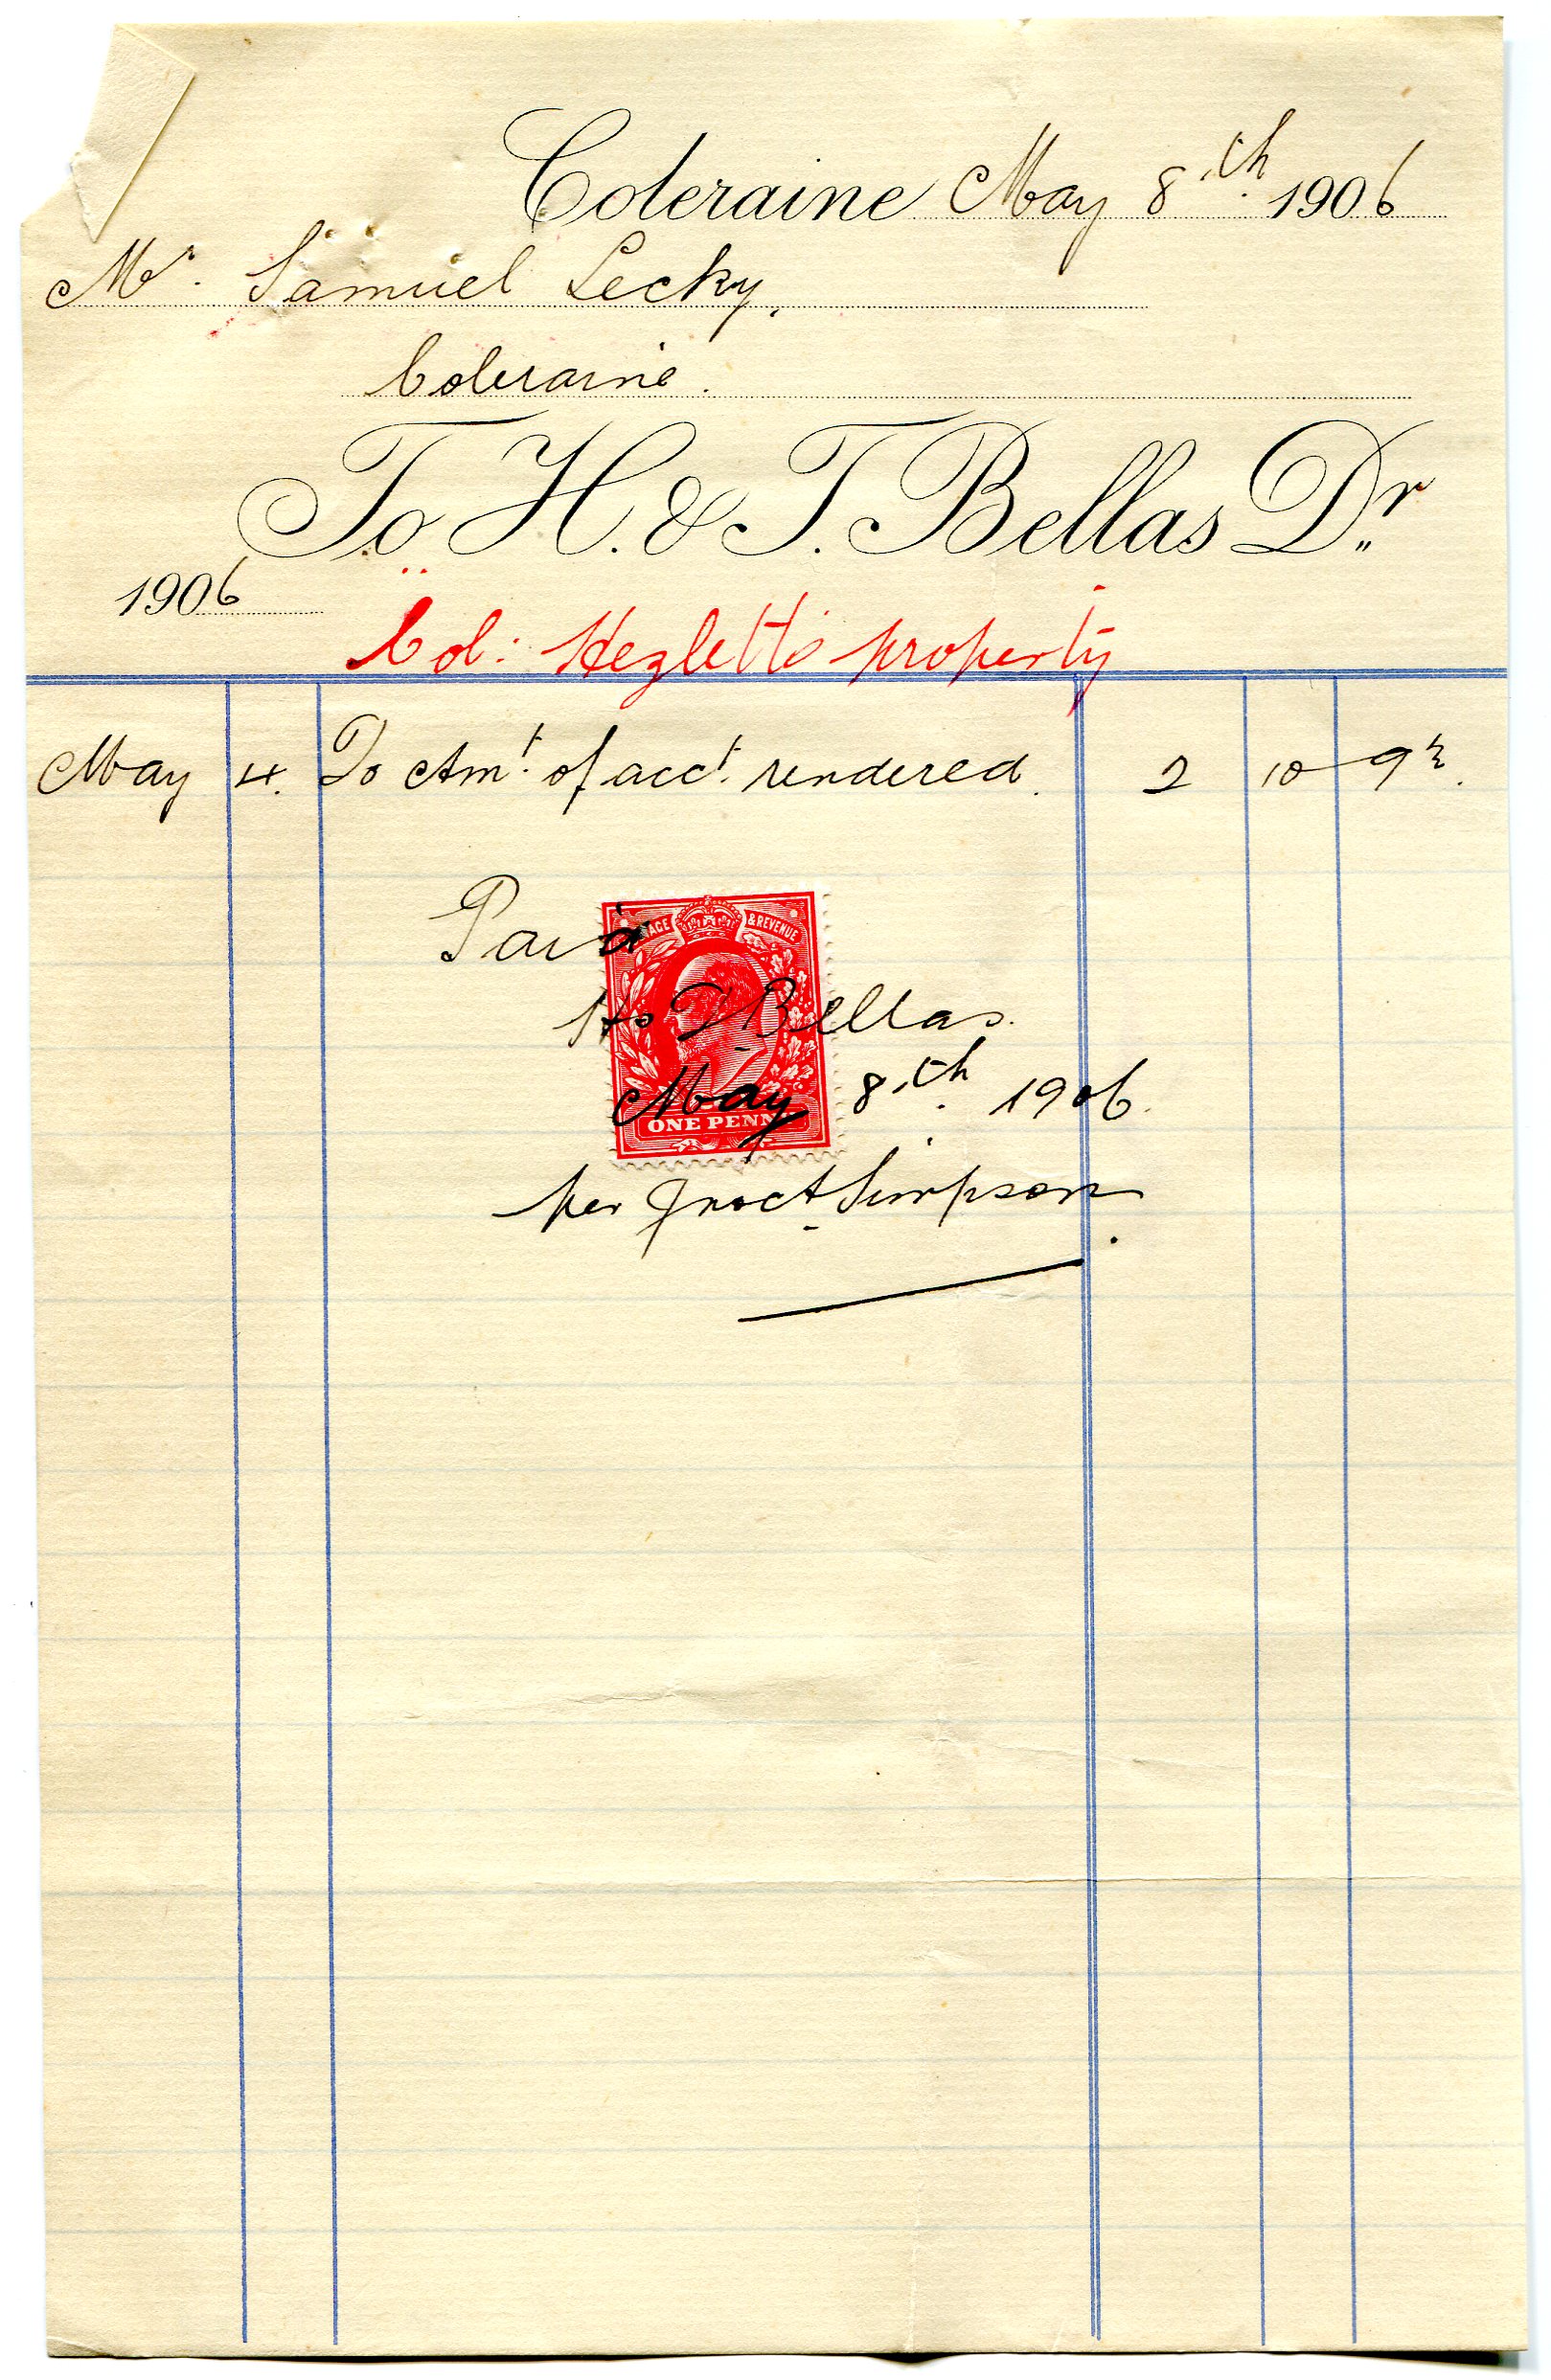 Coleraine May 8th 1906
Mr. Samuel Lecky,
Coleraine.
To H. & T. Bellas Dr
1906
Col: Hezletts property
May 4. To Amt. of acct. rendered. 2 10 9½.
Paid
POSTAGE & REVENUE
H & T Bellas.
May 8th. 1906.
ONE PENNY
per Simpson